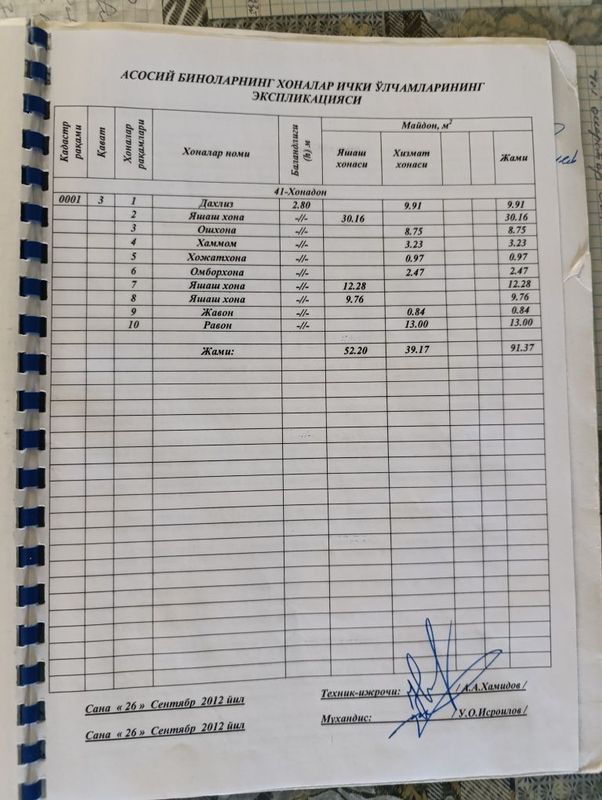 АСОСИЙ БИНОЛАРНИНГ ХОНАЛАР ИЧКИ ЎЛЧАМЛАРИНИНГ
ЭКСПЛИКАЦИЯСИ
Кадастр рақами Қават Хоналар рақамлари Хоналар номи Баландлиги (h) м Майдон, м2
Яшаш хонаси Хизмат хонаси Жами
41-Хонадон
0001 3 1 Дахлиз 2.80 9.91 9.91
2 Яшаш хона -//- 30.16 30.16
3 Ошхона -//- 8.75 8.75
4 Хаммом -//- 3.23 3.23
5 Хожатхона -//- 0.97 0.97
6 Омборхона -//- 2.47 2.47
7 Яшаш хона -//- 12.28 12.28
8 Яшаш хона -//- 9.76 9.76
9 Жавон -//- 0.84 0.84
10 Равон -//- 13.00 13.00
Жами: 52.20 39.17 91.37
Сана « 26 » Сентябр 2012 йил Техник-ижрочи: / А.А.Хамидов /
Сана « 26 » Сентябр 2012 йил Мухандис: / У.О.Исроилов /